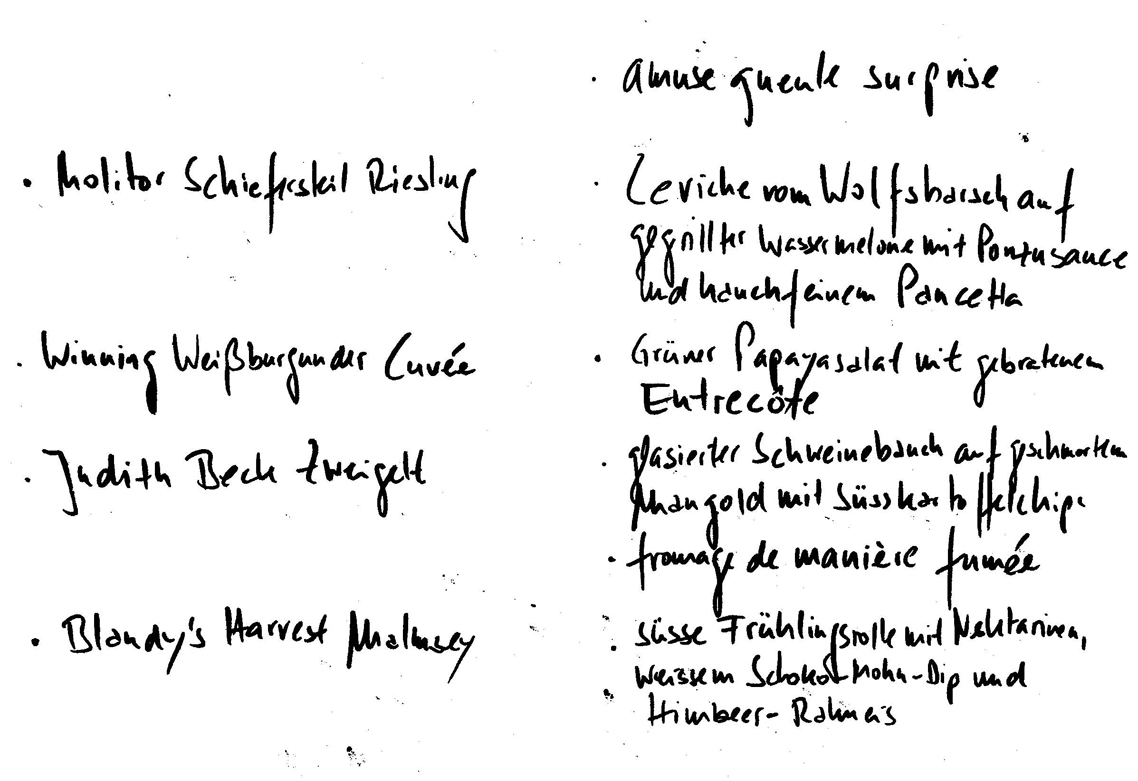 · amuse gueule surprise
· Molitor Schiefersteil Riesling
· Ceviche vom Wolfsbarsch auf
gegrillter Wassermelone mit Ponzusauce
und hauchfeinem Pancetta
· Winning Weißburgunder Cuvée
· Grüner Papayasalat mit gebratenem
Entrecôte
· Judith Beck Zweigelt
· glasierter Schweinebauch auf geschmortem
Mangold mit Süsskartoffelchips
· fromage de manière fumée
· Blandy's Harvest Malmsey
· süsse Frühlingsrolle mit Nektarinen,
weissem Schoko-Mohn-Dip und
Himbeer-Rahmeis